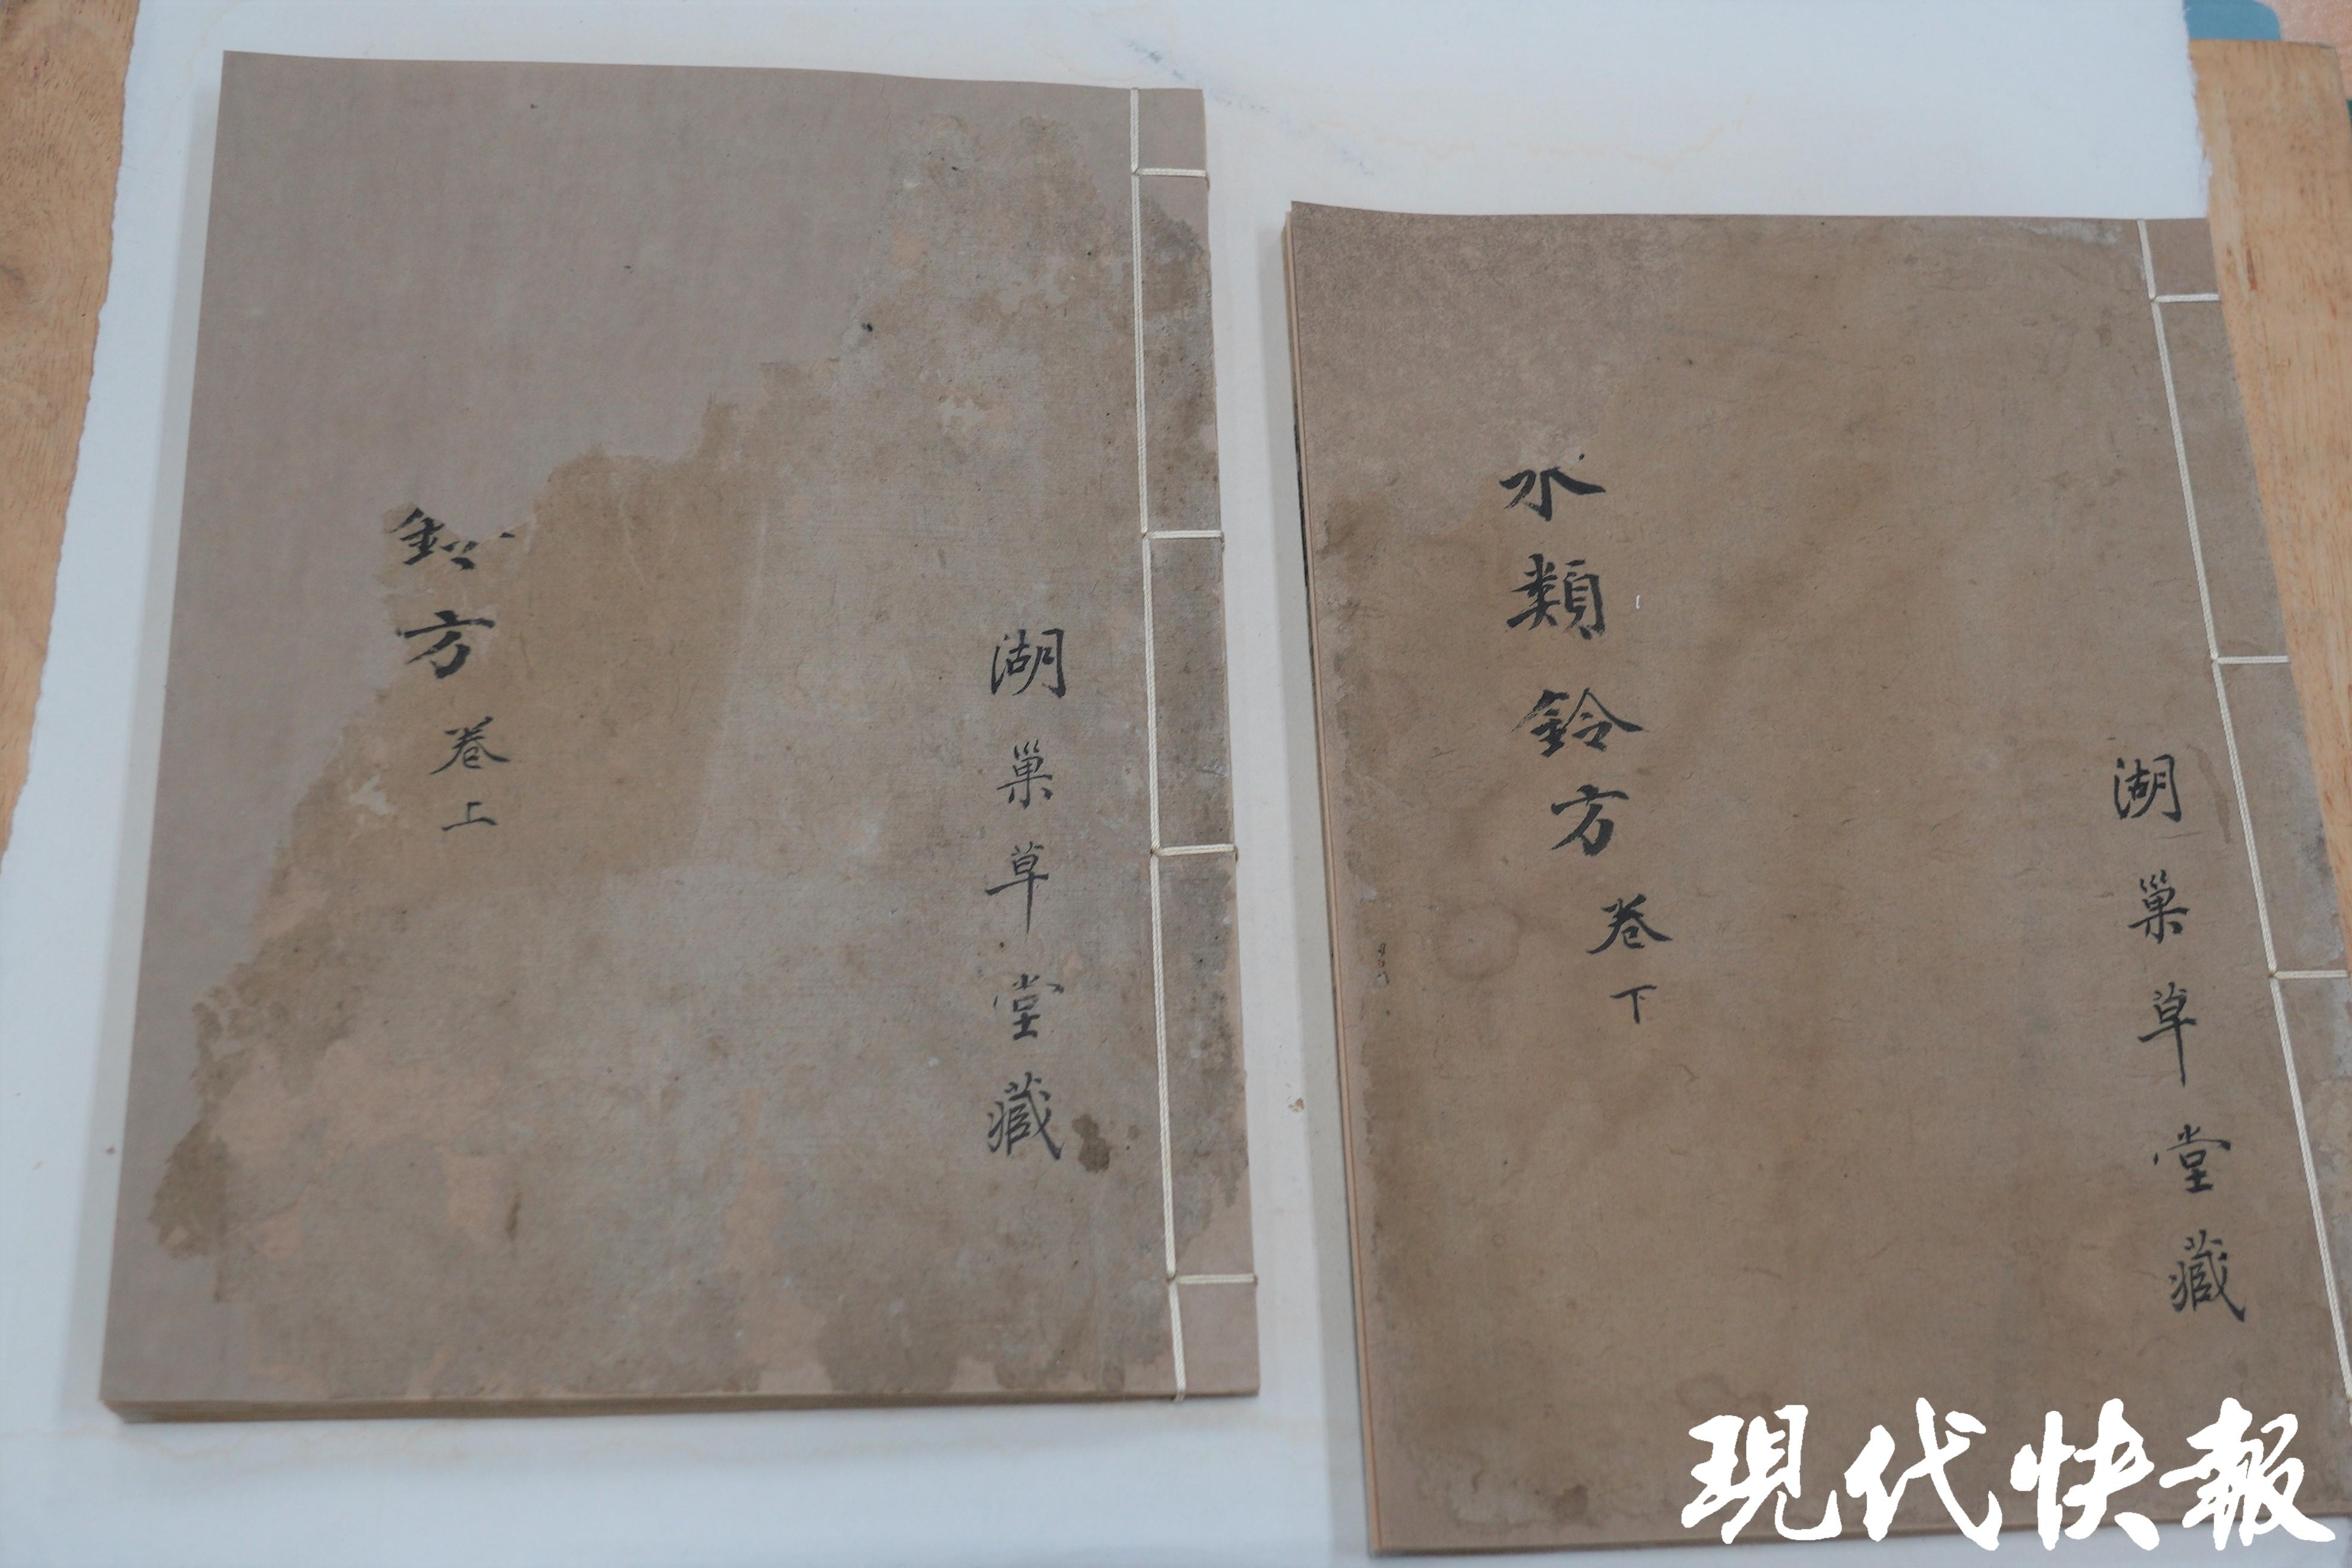 湖巢草堂藏
方卷上
湖巢草堂藏
水類鈴方卷下
現代快報